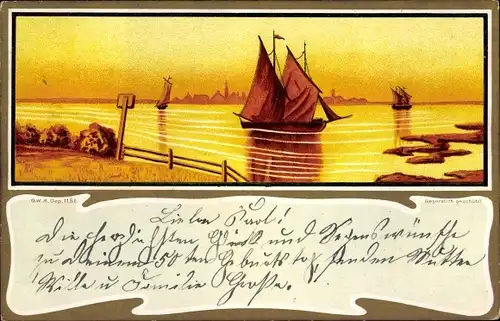 G.W.K. Dep. 1151.
Gesetzlich geschützt
Lieber Karl!
Die herzlichsten Glück und Segenswünsche
zu deinem 50ten Geburtstag senden Mutter
Wille u Familie Große.